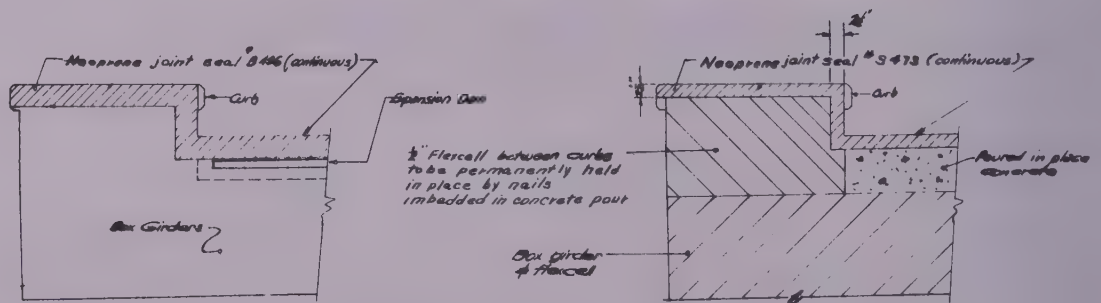 Neoprene joint seal # B-486 (continuous)
Curb
Expansion Dam
Box Girders
Neoprene joint seal # S 473 (continuous)
Curb
½" Flexcell between curbs
to be permanently held
in place by nails
imbedded in concrete pour
Poured in place
concrete
Box girder
& flexcell